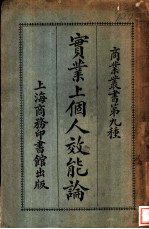 商業叢書第九種
實業上個人效能論
上海商務印書館出版